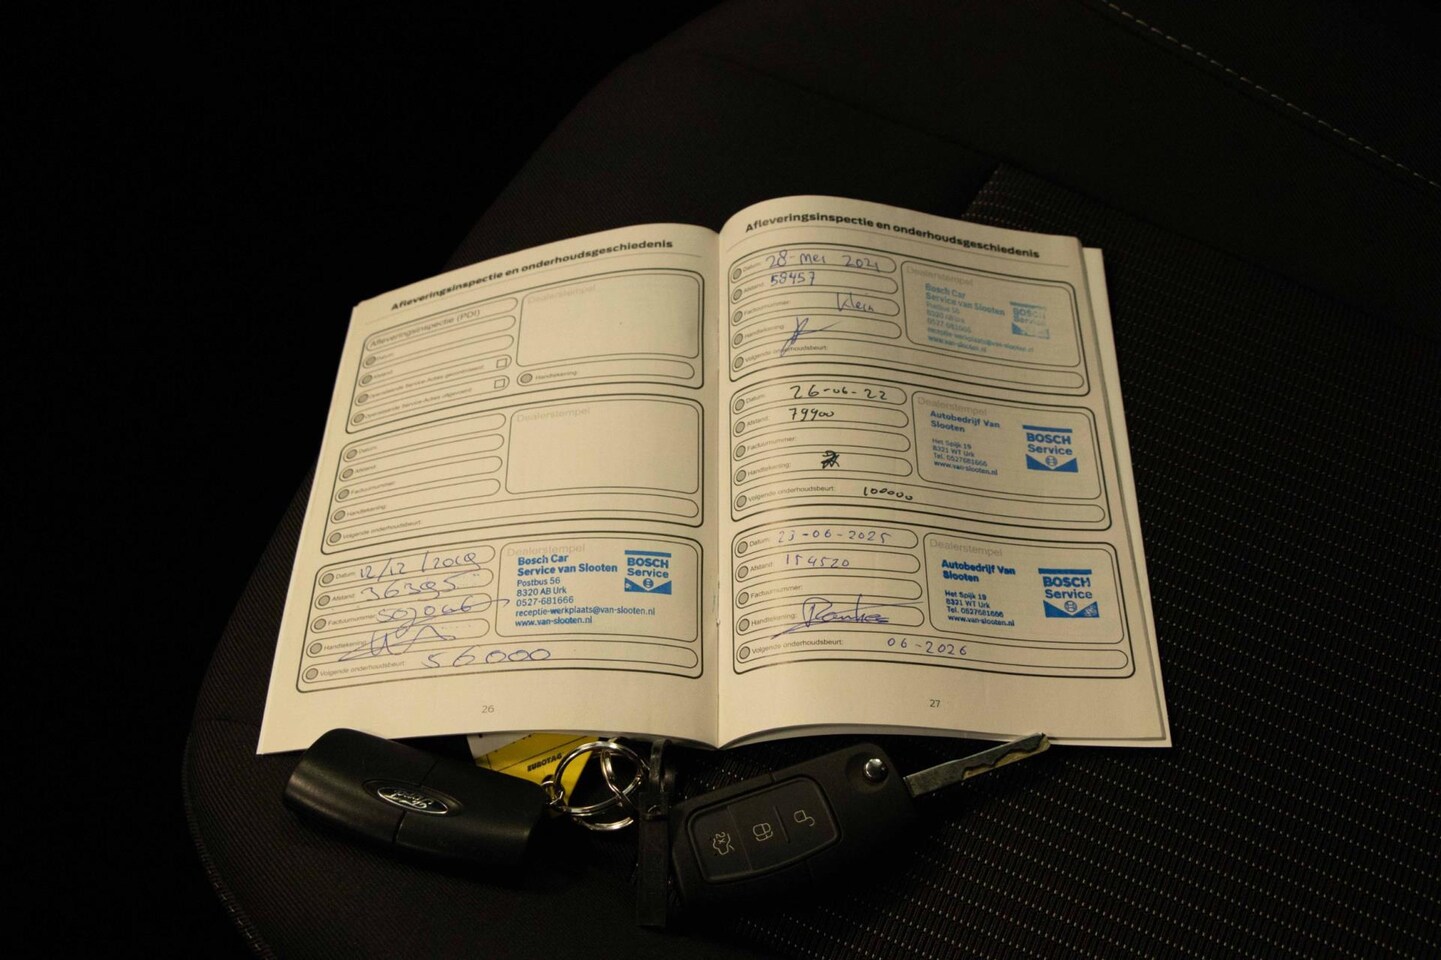 Afleveringsinspectie en onderhoudsgeschiedenis
Afleveringsinspectie (PDI)
Dealerstempel
Datum:
Afstand:
Handtekening:
Dealerstempel
Datum:
Afstand:
Factuurnummer:
Handtekening:
Volgende onderhoudsbeurt:
Datum: 12/12/2019
Afstand: 36395
Factuurnummer: 502066
Handtekening:
Volgende onderhoudsbeurt: 56000
Dealerstempel
Bosch Car
Service van Slooten
Postbus 56
8320 AB Urk
0527-681666
receptie-werkplaats@van-slooten.nl
www.van-slooten.nl
BOSCH
Service
26
Afleveringsinspectie en onderhoudsgeschiedenis
Datum: 28-mei 2021
Afstand: 58457
Factuurnummer:
Handtekening:
Volgende onderhoudsbeurt:
Dealerstempel
Bosch Car
Service van Slooten
Postbus 56
8320 AB Urk
0527-681666
receptie-werkplaats@van-slooten.nl
www.van-slooten.nl
BOSCH
Service
Datum: 26-06-22
Afstand: 79900
Factuurnummer:
Handtekening:
Volgende onderhoudsbeurt: 100000
Dealerstempel
Autobedrijf Van
Slooten
Het Spijk 19
8321 WT Urk
Tel. 0527681666
www.van-slooten.nl
BOSCH
Service
Datum: 23-06-2025
Afstand: 154520
Factuurnummer:
Handtekening:
Volgende onderhoudsbeurt: 06-2026
Dealerstempel
Autobedrijf Van
Slooten
Het Spijk 19
8321 WT Urk
Tel. 0527681666
www.van-slooten.nl
BOSCH
Service
27
EUROTAG
Ford
2x